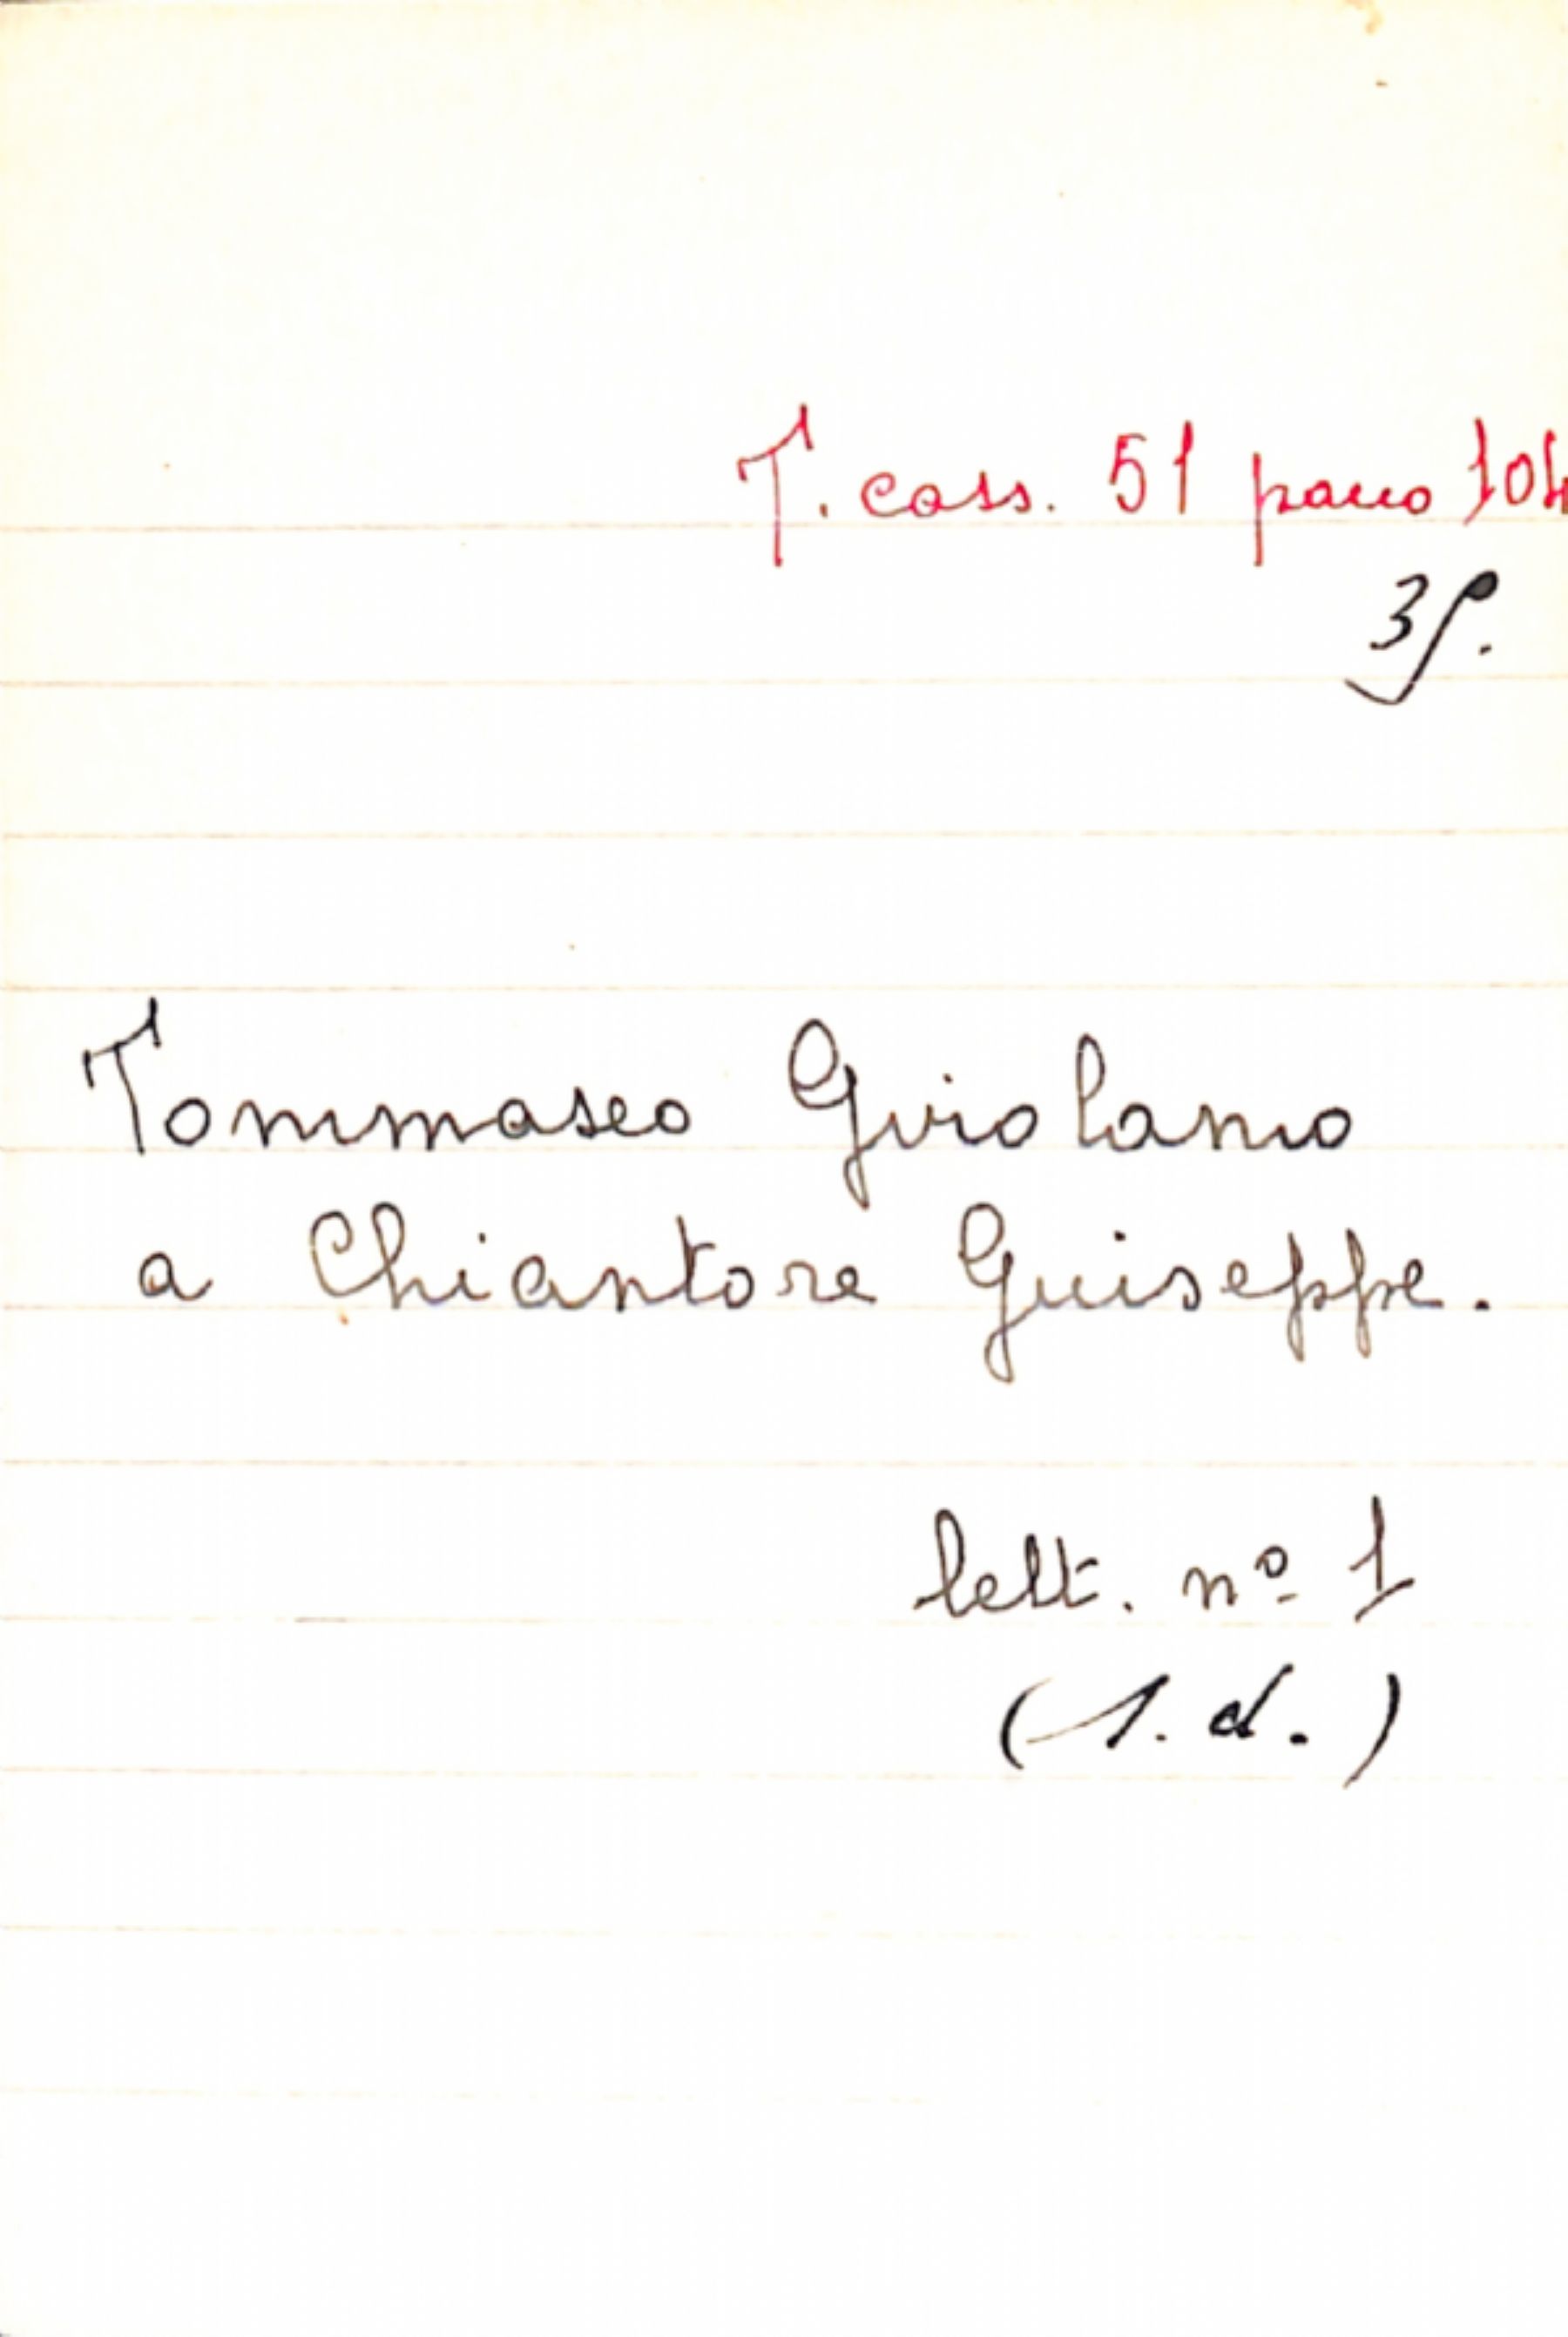 T. cass. 51 pacco 104
3
Tommaseo Girolamo
a Chiantore Giuseppe.
lett. nº 1
(s. d.)